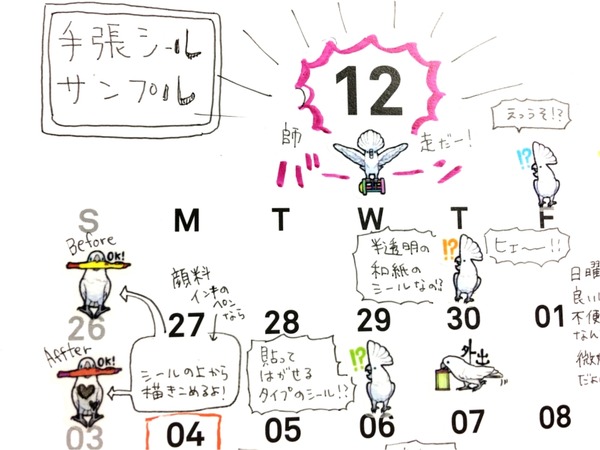 手張シール
サンプル
12
師
走だー!
バーーン
えっうそ!?
!?
S M T W T F
Before
OK!
顔料
インキの
ペン
なら
半透明の
和紙の
シールなの!?
!?
ヒェ〜ー!!
日曜
良い
不便
なん
26 27 28 29 30 01
微
だよ
Affter
OK!
シールの上から
描きこめるよ!
貼って
はがせる
タイプのシール!?
!?
外出
03 04 05 06 07 08